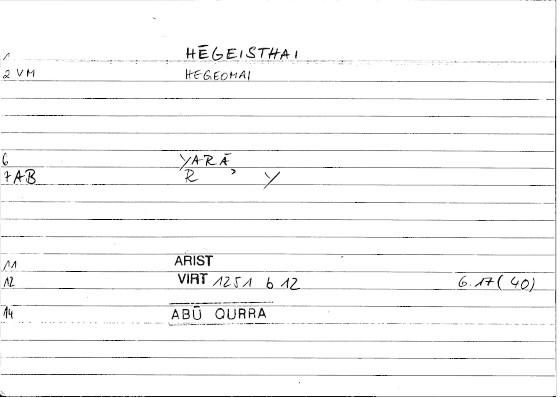 1 HĒGEISTHAI
2 VM HEGEOMAI
6 YARĀ
7AB R ʾ Y
11 ARIST
12 VIRT 1251 b 12 6.17(40)
14 ABŪ QURRA